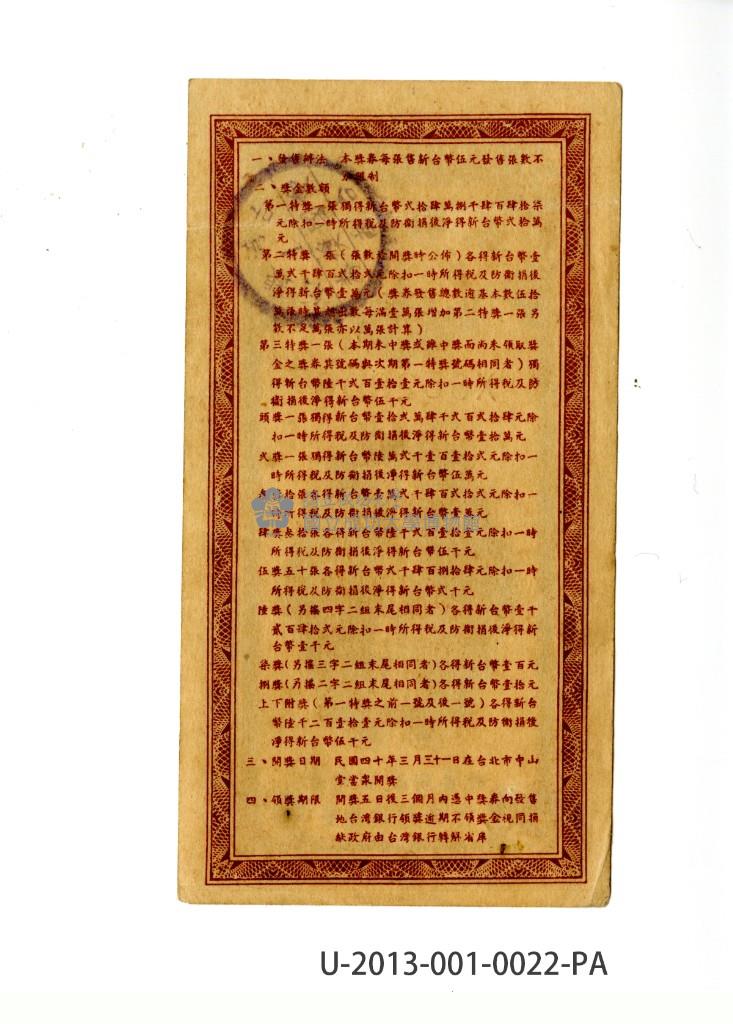 一、發售辦法　本獎券每張售新台幣伍元發售張數不
限制
二、獎金數額
第一特獎一張獨得新台幣弍拾肆萬捌千肆百肆拾柒
元除扣一時所得稅及防衛捐後淨得新台幣弍拾萬
元
第二特獎　張（張數於開獎時公佈）各得新台幣壹
萬弍千肆百弍拾弍元除扣一時所得稅及防衛捐後
淨得新台幣壹萬元（獎券發售總數逾基本數伍拾
萬張時其超出數每滿壹萬張增加第二特獎一張另
數不足萬張亦以萬張計算）
第三特獎一張（本期未中獎或雖中獎而尚未領取獎
金之獎券其號碼與次期第一特獎號碼相同者）獨
得新台幣陸千弍百壹拾壹元除扣一時所得稅及防
衛捐後淨得新台幣伍千元
頭獎一張獨得新台幣壹拾弍萬肆千弍百弍拾肆元除
扣一時所得稅及防衛捐後淨得新台幣壹拾萬元
弍獎一張獨得新台幣陸萬弍千壹百壹拾弍元除扣一
時所得稅及防衛捐後淨得新台幣伍萬元
叁獎拾張各得新台幣壹萬弍千肆百弍拾弍元除扣一
時所得稅及防衛捐後淨得新台幣壹萬元
肆獎叁拾張各得新台幣陸千弍百壹拾壹元除扣一時
所得稅及防衛捐後淨得新台幣伍千元
伍獎五十張各得新台幣弍千肆百捌拾肆元除扣一時
所得稅及防衛捐後淨得新台幣弍千元
陸獎（另搖四字二組末尾相同者）各得新台幣壹千
貳百肆拾弍元除扣一時所得稅及防衛捐後淨得新
台幣壹千元
柒獎（另搖三字二組末尾相同者）各得新台幣壹百元
捌獎（另搖二字二組末尾相同者）各得新台幣壹拾元
上下附獎（第一特獎之前一號及後一號）各得新台
幣陸千二百壹拾壹元除扣一時所得稅及防衛捐後
淨得新台幣伍千元
三、開獎日期　民國四十年三月三十一日在台北市中山
堂當眾開獎
四、領獎期限　開獎五日後三個月內憑中獎券向發售
地台灣銀行領獎逾期不領獎金視同捐
献政府由台灣銀行轉解省庫
U-2013-001-0022-PA